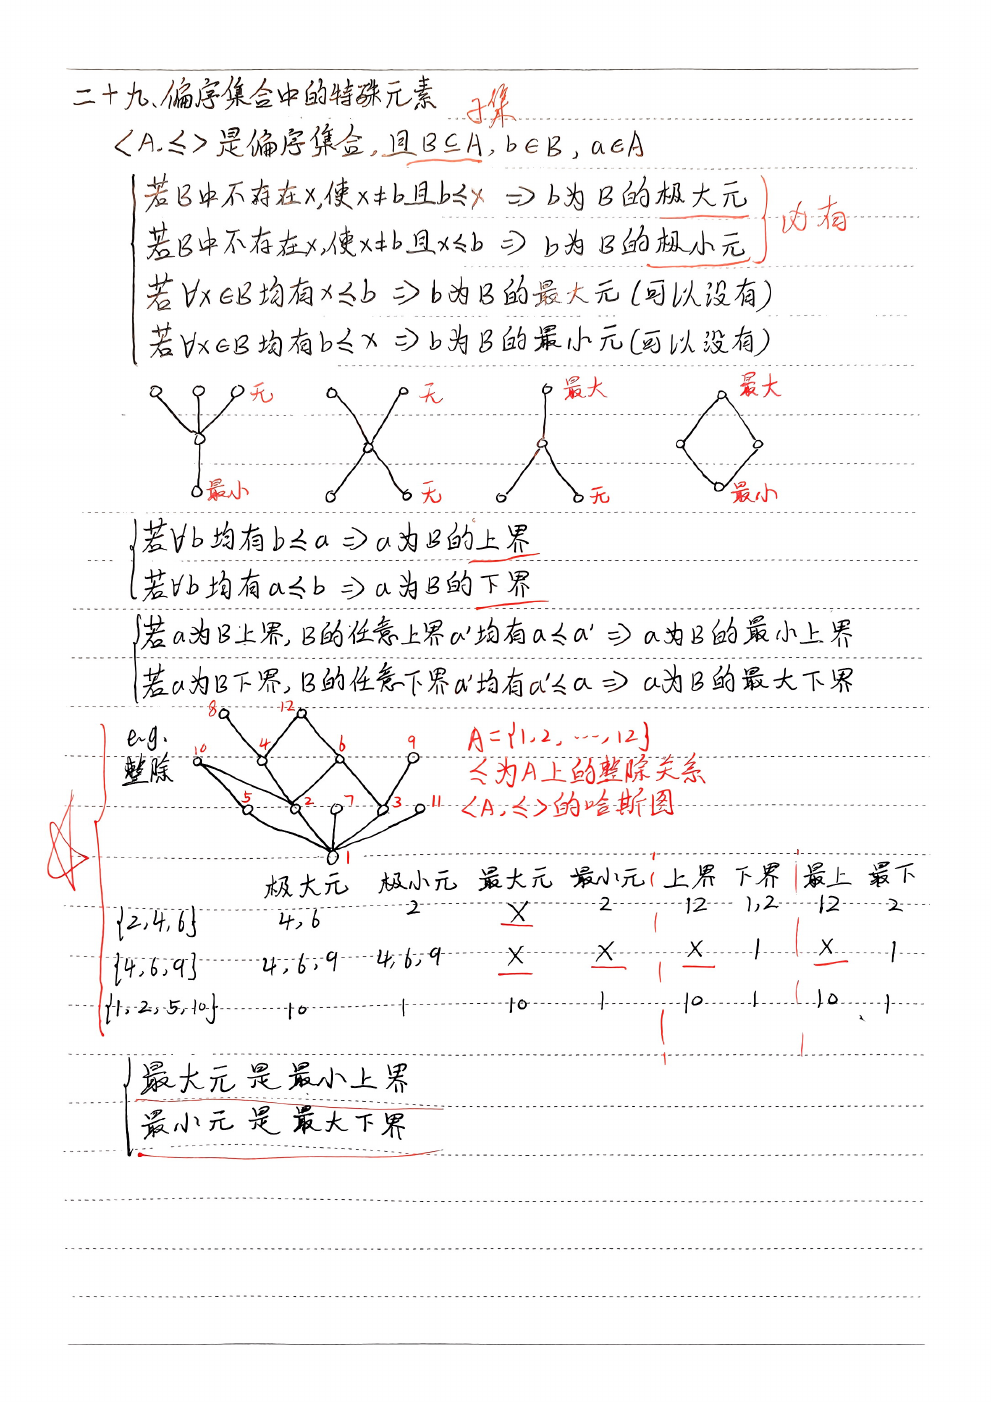 二十九、偏序集合中的特殊元素
子集
<A,≤>是偏序集合,且B⊆A,b∈B,a∈A
若B中不存在x,使x≠b且b≤x ⇒ b为B的极大元
若B中不存在x,使x≠b且x≤b ⇒ b为B的极小元
必有
若∀x∈B均有x≤b ⇒ b为B的最大元(可以没有)
若∀x∈B均有b≤x ⇒ b为B的最小元(可以没有)
无 无 最大 最大
最小 无 无 最小
若∀b均有b≤a ⇒ a为B的上界
若∀b均有a≤b ⇒ a为B的下界
若a为B上界,B的任意上界a'均有a≤a' ⇒ a为B的最小上界
若a为B下界,B的任意下界a'均有a'≤a ⇒ a为B的最大下界
8 12
e.g. 10 4 6 9 A={1,2,…,12}
整除 ≤为A上的整除关系
5 2 7 3 11 <A,≤>的哈斯图
1
极大元 极小元 最大元 最小元 上界 下界 最上 最下
{2,4,6} 4,6 2 X 2 12 1,2 12 2
{4,6,9} 4,6,9 4,6,9 X X X 1 X 1
{1,2,5,10} 10 1 10 1 10 1 10 1
最大元是最小上界
最小元是最大下界